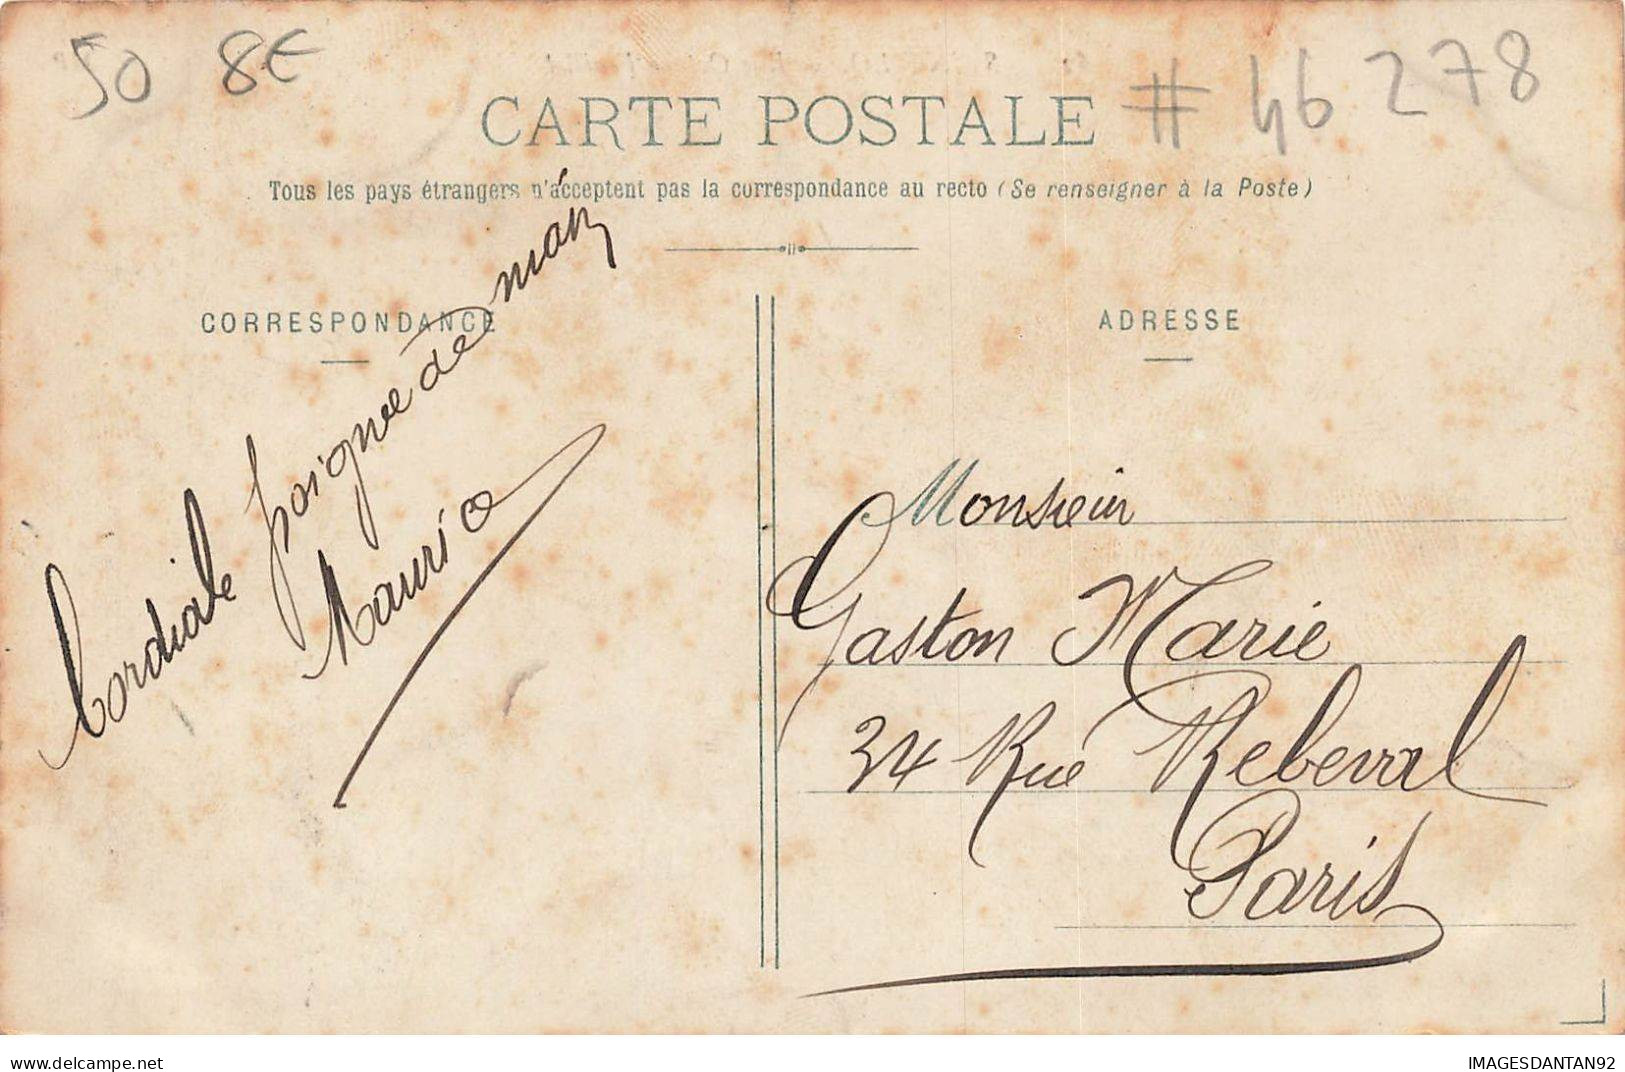 50 8€
CARTE POSTALE # 46 278
Tous les pays étrangers n'acceptent pas la correspondance au recto (Se renseigner à la Poste)
CORRESPONDANCE
Cordiale poignee de main
Maurice
ADRESSE
Monsieur
Gaston Marie
34 Rue Rebeval
Paris
www.delcampe.net
IMAGESDANTAN92